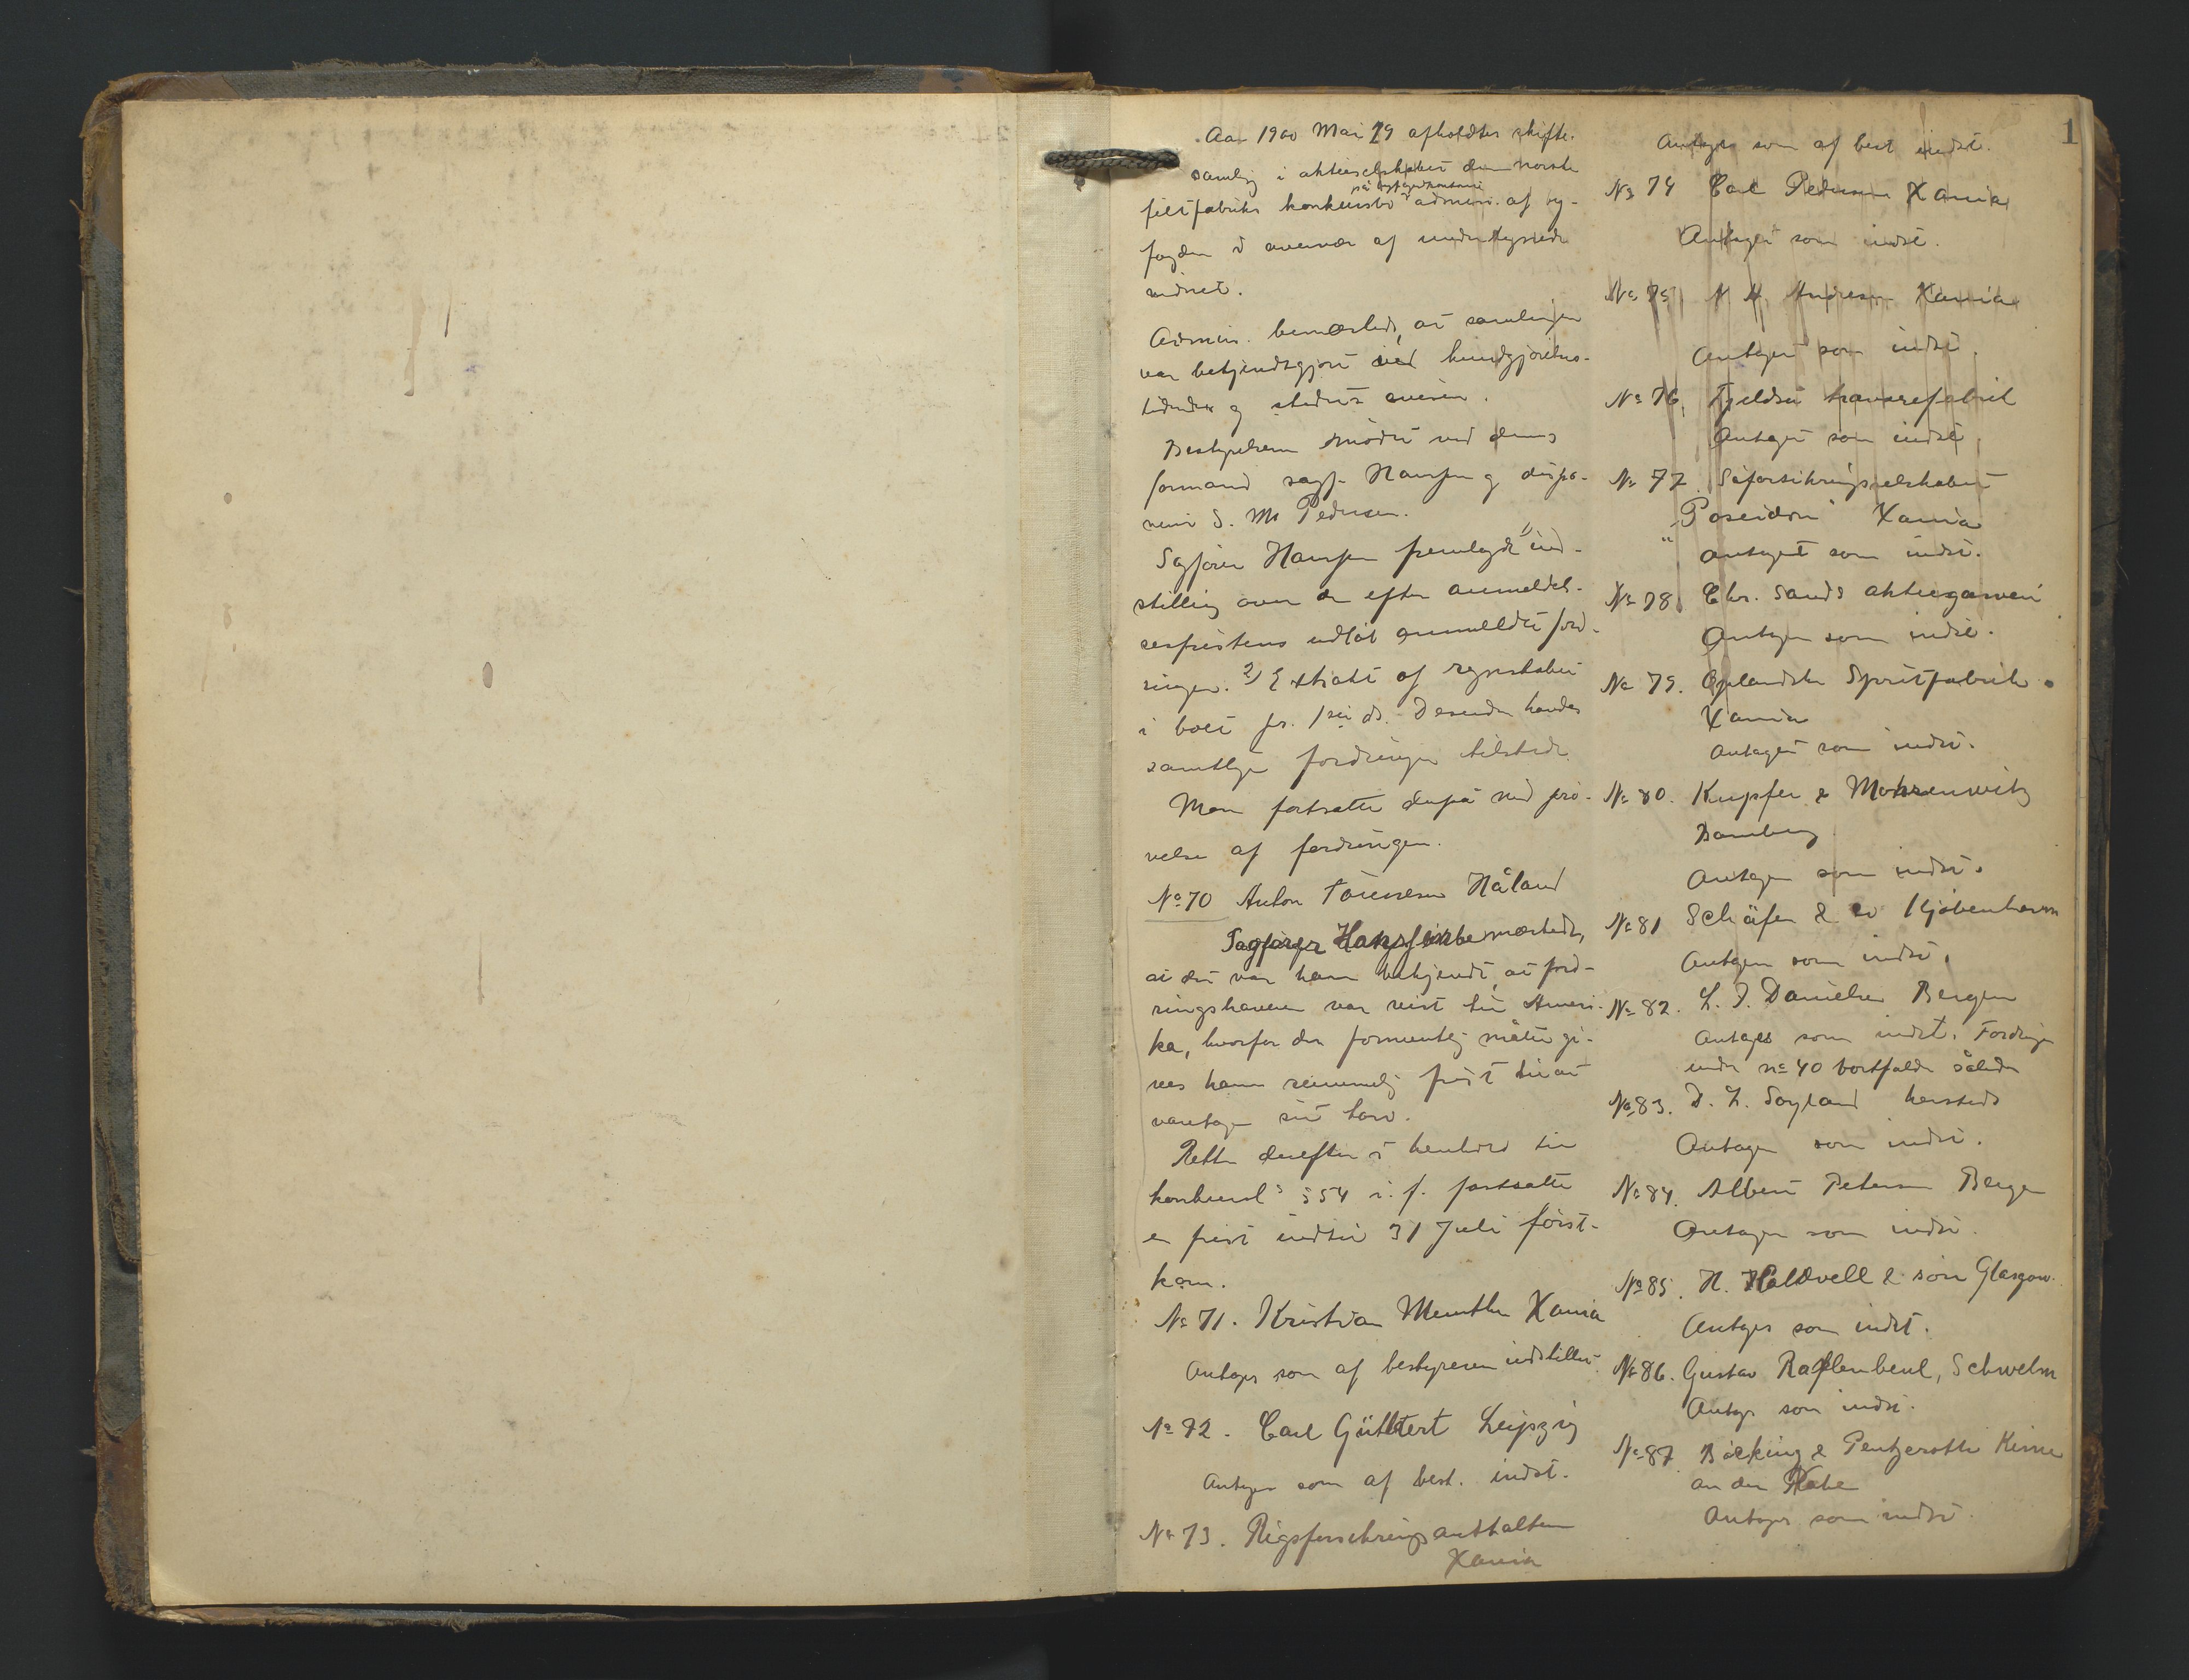 Aar 1900 Mai 29 afholdtes skifte-
samling i aktieselskabet den norske
på byfogedkontoret
filtfabriks konkursbo admin. af by-
fogden i overvær af undertegnede
vidnet.
Admin. bemærkede, at samlingen
var bekjendtgjort ved kundgjørelses-
tidende og stedets aviser.
Bestyrelsen mødte ved dens
formand sagf. Hansen og dispo-
nent S. M. Pedersen.
Sagfører Hansen fremlagde 1) ind-
stilling over de efter anmeldel-
sesfristens udløb anmeldte ford-
ringer. 2) Extrakt af regnskabet
i boet pr. 1ste ds. Desuden havdes
samtlige fordringer tilstede
Man fortsatte derpå med prø-
velse af fordringer.
No 70 Anton Tønnesen Håland
Sagfører Hansen bemærkede,
at det var ham bekjendt, at ford-
ringshaveren var reist til Ameri-
ka, hvorfor der formentlig måtte gi-
ves ham rimmelig frist til at
varetage sit tarv.
Retten derefter i henhold til
konkursl's § 54 i. f. fortsatte
en frist indtil 31 Juli først-
kom.
No 71. Kristian Menthe Xania
Antages som af bestyreren indstillet.
No 72. Carl Güttlert Leipzig
Antages som af best. indst.
No 73. Rigsforsikringsanstalten
Xania
1
Antages som af best indst.
No 74 Carl Pedersen Xania
Antaget som indst.
No 75 N A Andresen Xania
Antaget som indst.
No 76. Fjeldset trævarefabrik
Antaget som indst.
No 77. Søforsikringsselskabet
"Poseidon" Xania
antaget som indst.
No 78. Chr. Sands aktiegarveri
Antages som indst.
No 79. Oplandske Spritfabrik.
Xania
Antaget som indst.
No 80. Kupfer & Mohrenwitz
Bamberg
Antages som indst.
No 81 Schäfer & co Kjøbenhavn
Antages som indst.
No 82. L. J. Danielsen Bergen
Antages som indst. Fordringen
under no 40 bortfalder således
No 83. D. L. Søyland hersteds
Antages som indst.
No 84. Albert Petersen Bergen
Antages som indst.
No 85. H. Haldvell & søn Glasgow.
Antages som indst.
No 86. Gustav Rafflenbeul, Schwelm
Antages som indst.
No 87 Böcking & Pentzeroth Kirn
an der Nahe
Antages som indst.